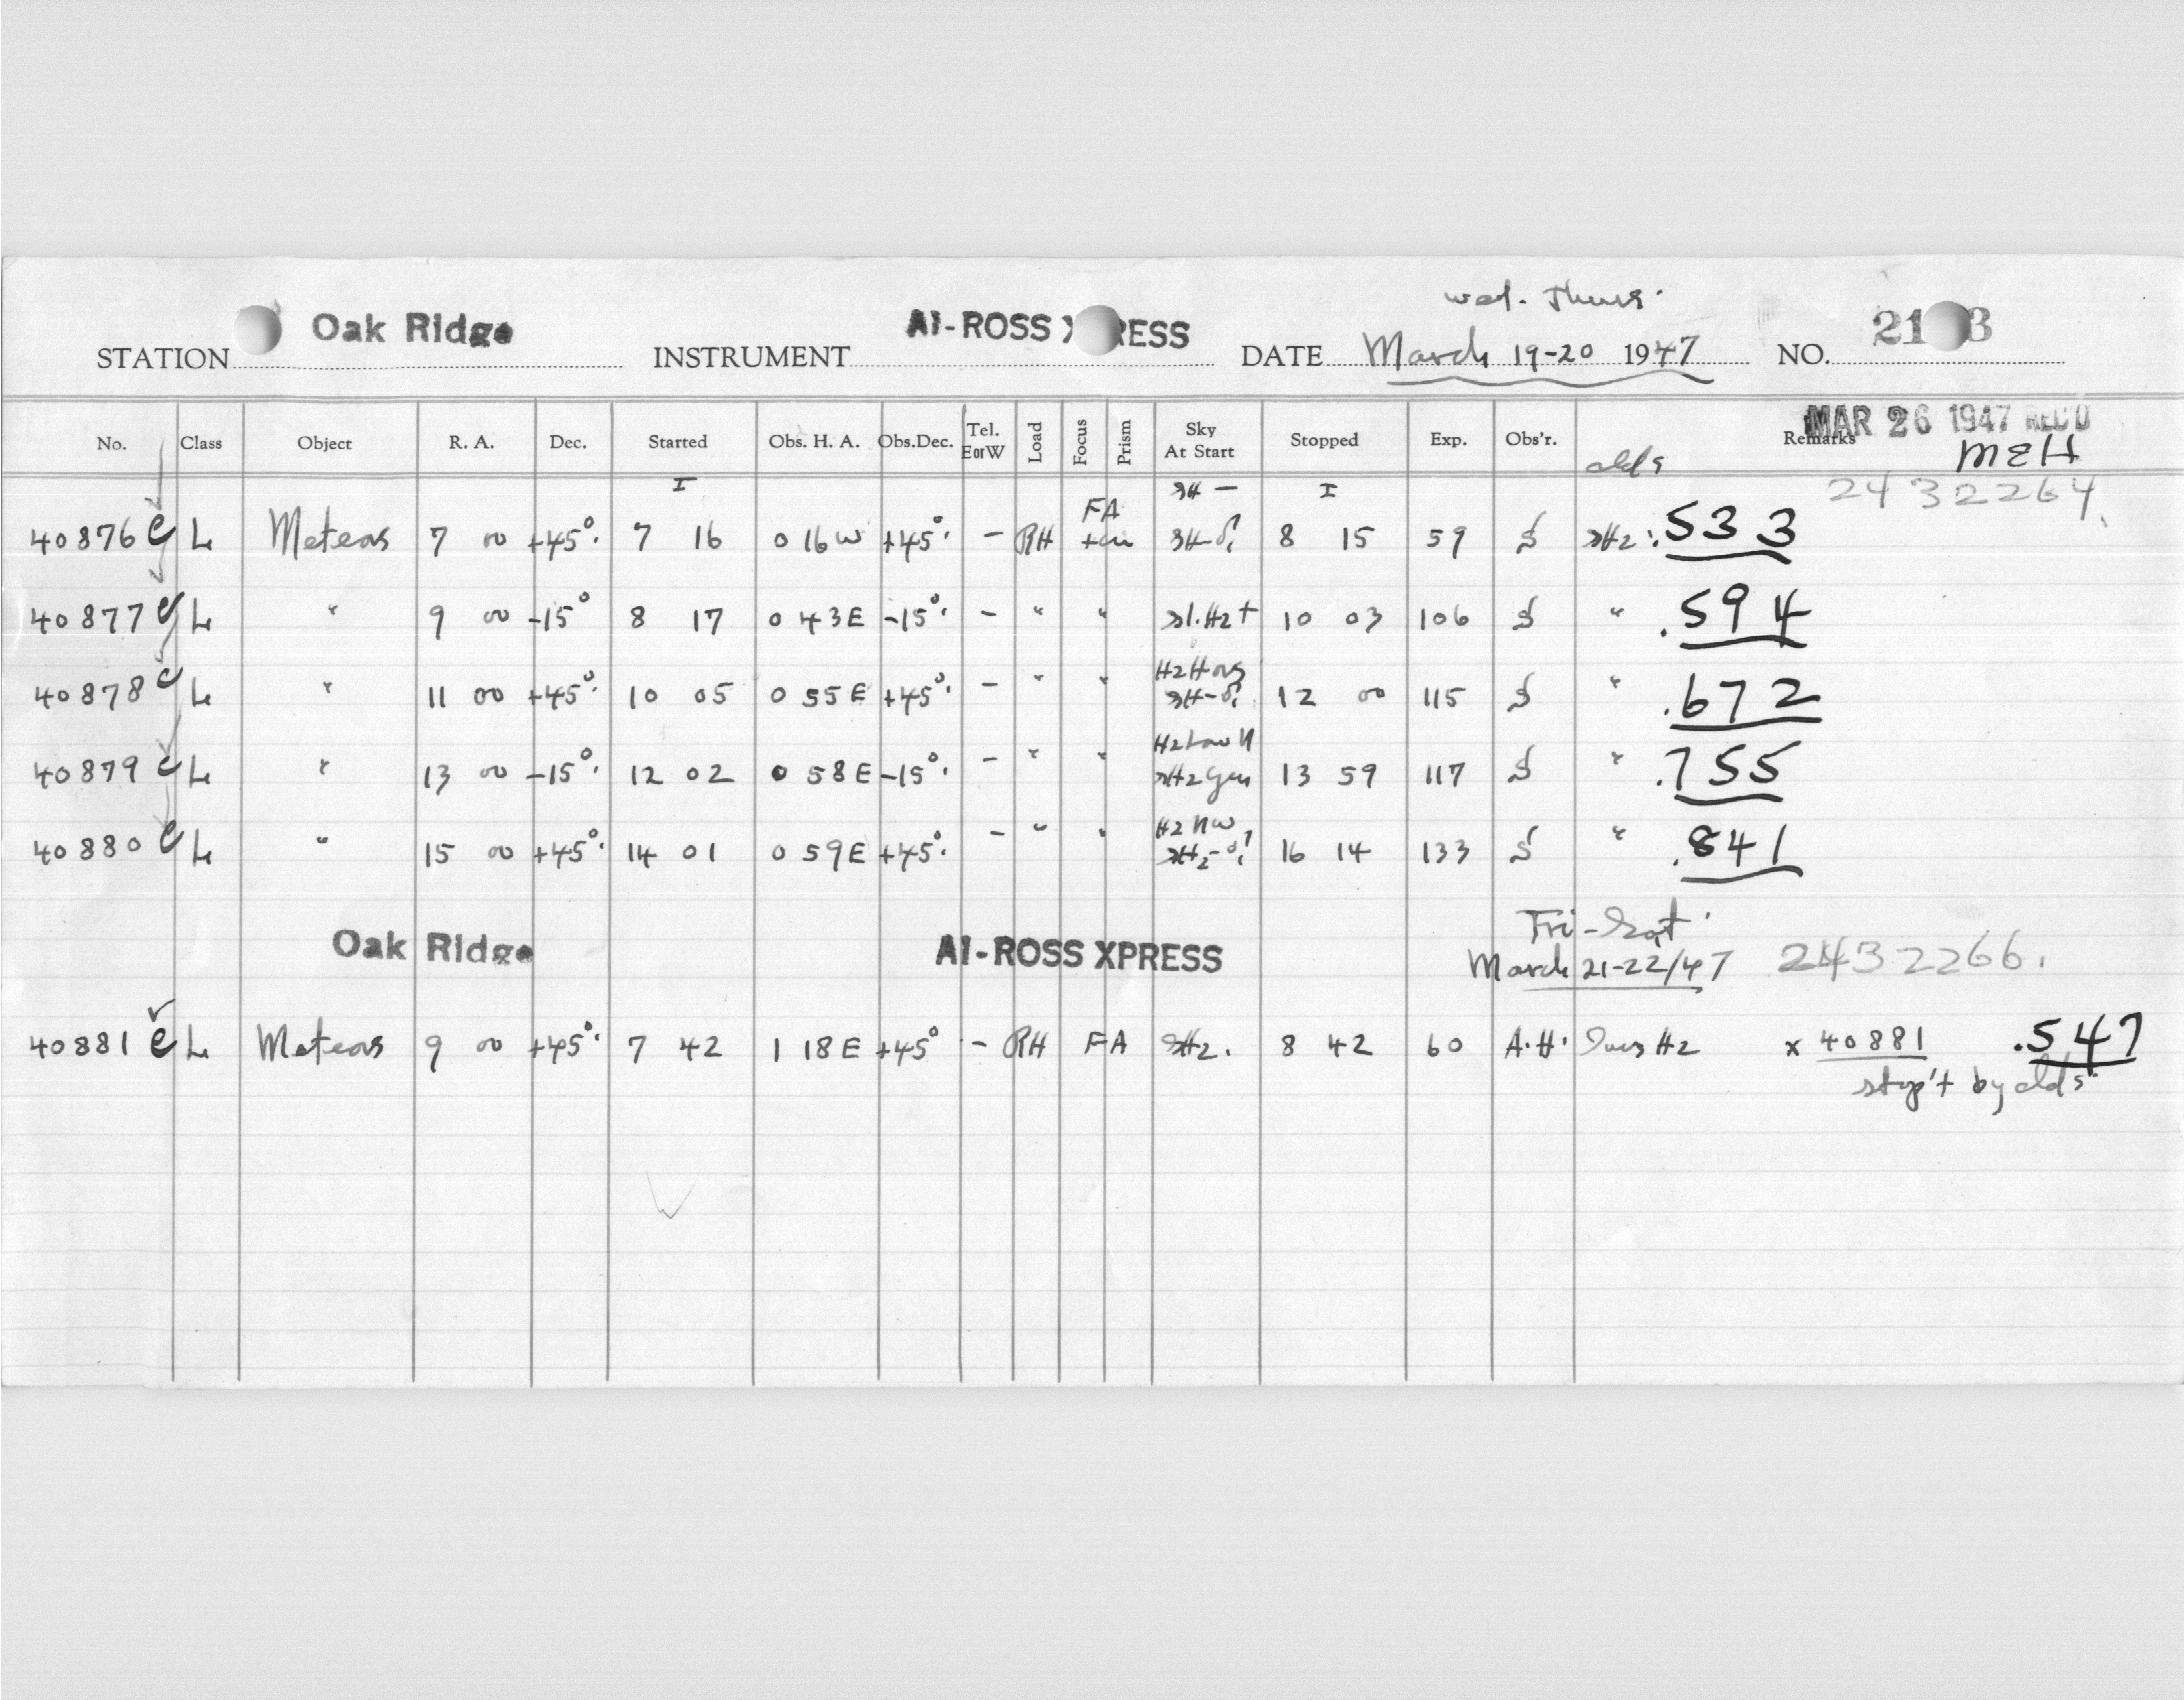 wed. Thurs.
STATION Oak Ridge INSTRUMENT AI-ROSS XPRESS DATE March 19-20 1947 NO. 21 3
MAR 26 1947 REC'D
No. Class Object R. A. Dec. Started Obs. H. A. Obs.Dec. Tel. E or W Load Focus Prism Sky At Start Stopped Exp. Obs'r. Remarks
clds MEH
I I 2432264.
40876 e L Meteors 7 00 +45° 7 16 0 16 W +45° - RH FA 8 15 59 S .533
40877 e L " 9 00 -15° 8 17 0 43 E -15° - " " sl. Hz + 10 03 106 S " .594
40878 e L " 11 00 +45° 10 05 0 55 E +45° - " " 12 00 115 S " .672
40879 e L " 13 00 -15° 12 02 0 58 E -15° - " " Hz Low N 13 59 117 S " .755
40880 e L " 15 00 +45° 14 01 0 59 E +45° - " " Hz NW 16 14 133 S " .841
Fri-Sat
Oak Ridge AI-ROSS XPRESS March 21-22/47 2432266.
40881 e L Meteors 9 00 +45° 7 42 1 18 E +45° - RH FA 8 42 60 A.H. Hz x 40881 .547
stop't by clds